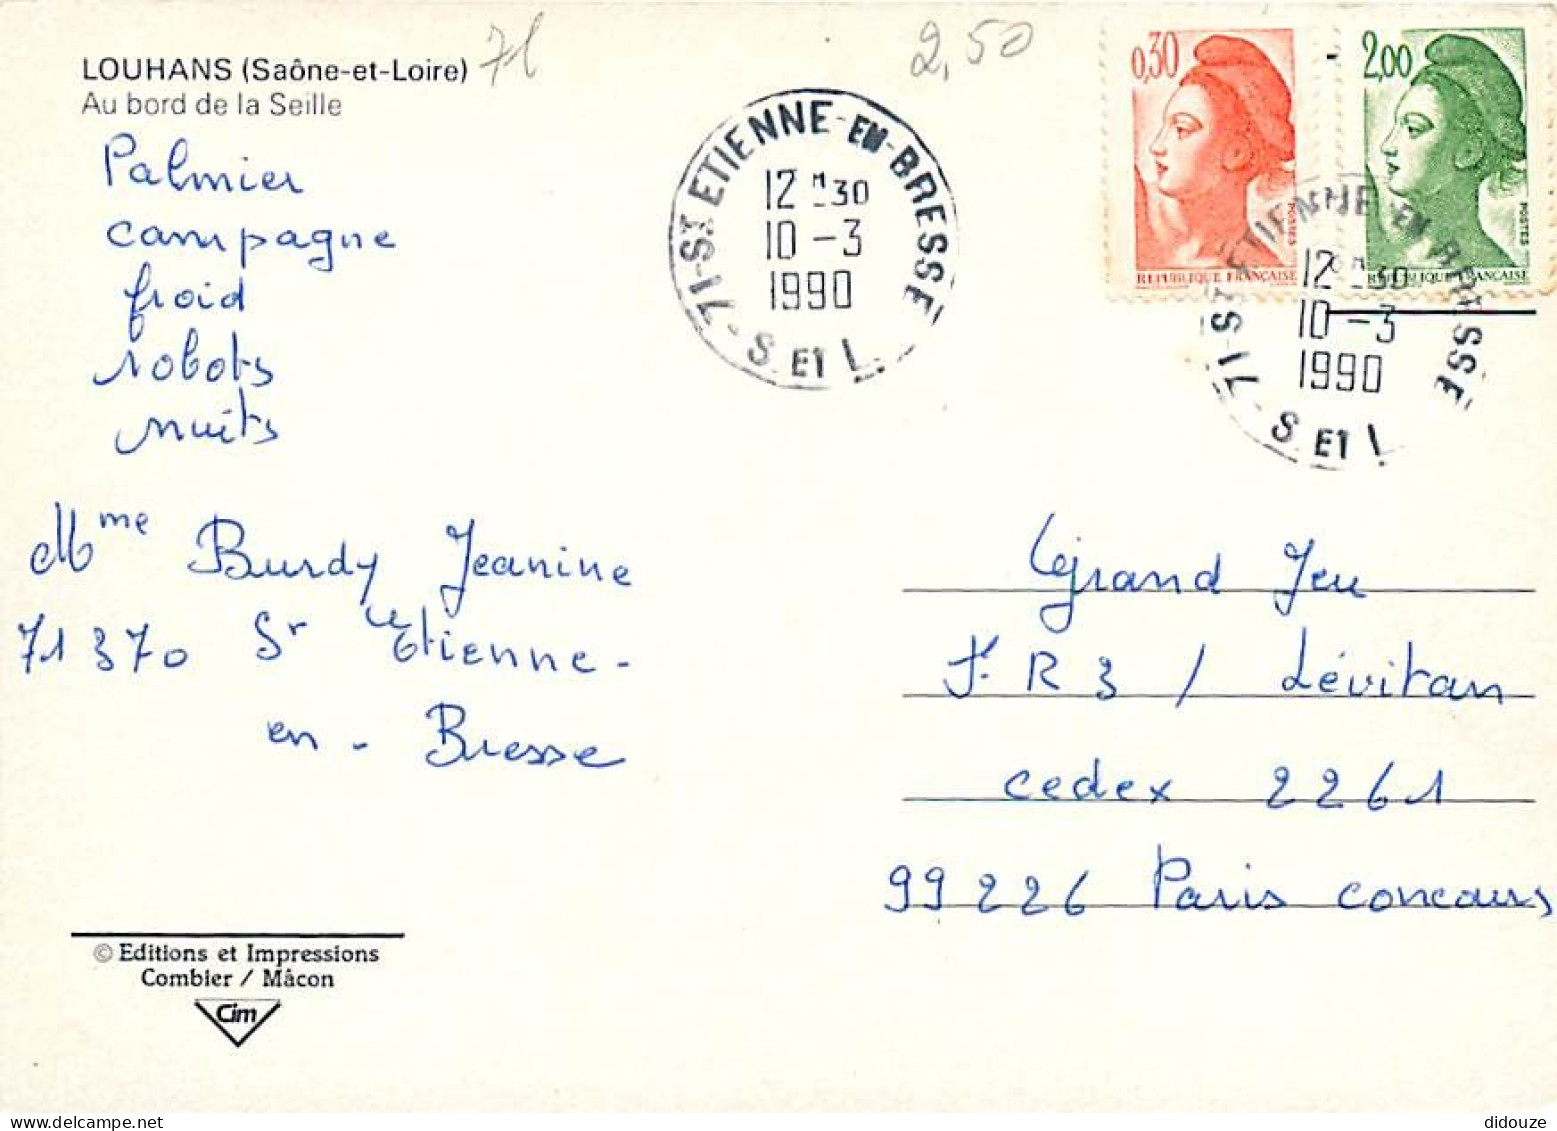 LOUHANS (Saône-et-Loire) 71
Au bord de la Seille
2,50
Palmier
campagne
froid
robots
nuits
Mme Burdy Jeanine
71370 St Etienne-
en - Bresse
71-ST ETIENNE-EN-BRESSE
12 H 30
10 - 3
1990
S. ET L.
0,30
POSTES
REPUBLIQUE FRANÇAISE
2,00
POSTES
REPUBLIQUE FRANÇAISE
71-ST ETIENNE-EN-BRESSE
12 H 30
10 - 3
1990
S. ET L
Grand Jeu
F.R 3 / Lévitan
cedex 2261
99226 Paris concours
© Editions et Impressions
Combier / Mâcon
Cim
didouze